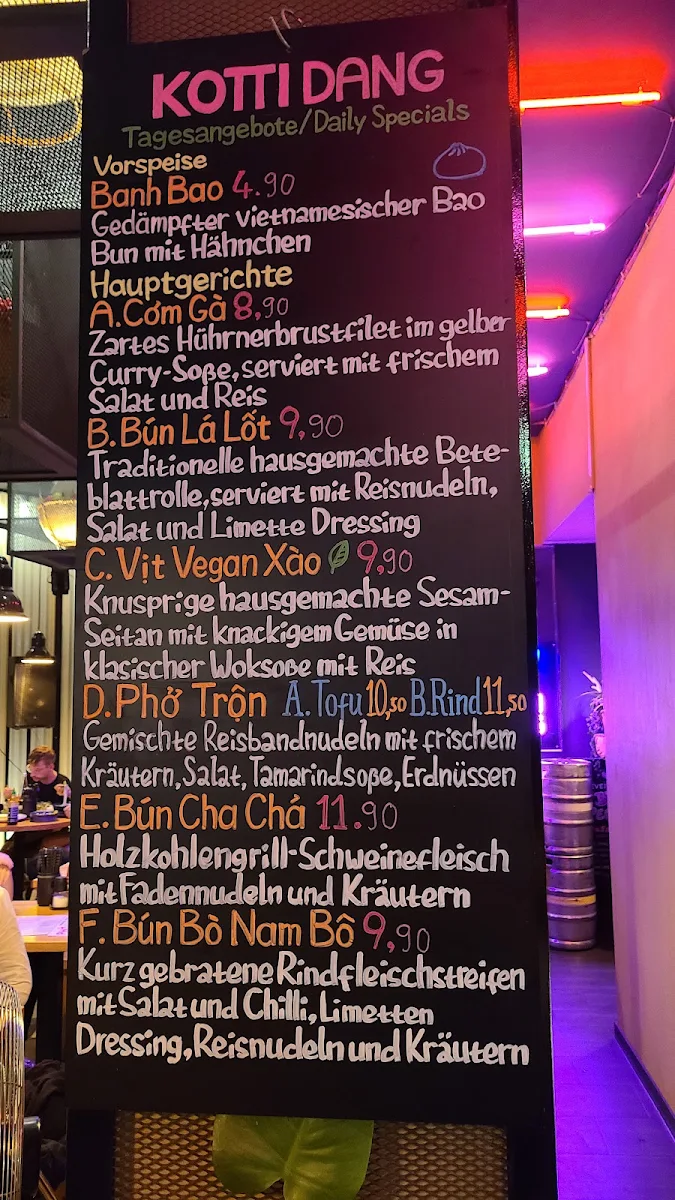 KOTTI DANG
Tagesangebote/Daily Specials
Vorspeise
Banh Bao 4.90
Gedämpfter vietnamesischer Bao
Bun mit Hähnchen
Hauptgerichte
A. Cơm Gà 8,90
Zartes Hührnerbrustfilet im gelber
Curry-Soße, serviert mit frischem
Salat und Reis
B. Bún Lá Lốt 9,90
Traditionelle hausgemachte Bete-
blattrolle, serviert mit Reisnudeln,
Salat und Limette Dressing
C. Vịt Vegan Xào 9,90
Knusprige hausgemachte Sesam-
Seitan mit knackigem Gemüse in
klasischer Woksoße mit Reis
D. Phở Trộn A. Tofu 10,50 B. Rind 11,50
Gemischte Reisbandnudeln mit frischem
Kräutern, Salat, Tamarindsoße, Erdnüssen
E. Bún Cha Chả 11.90
Holzkohlengrill-Schweinefleisch
mit Fadennudeln und Kräutern
F. Bún Bò Nam Bô 9,90
Kurz gebratene Rindfleischstreifen
mit Salat und Chilli, Limetten
Dressing, Reisnudeln und Kräutern